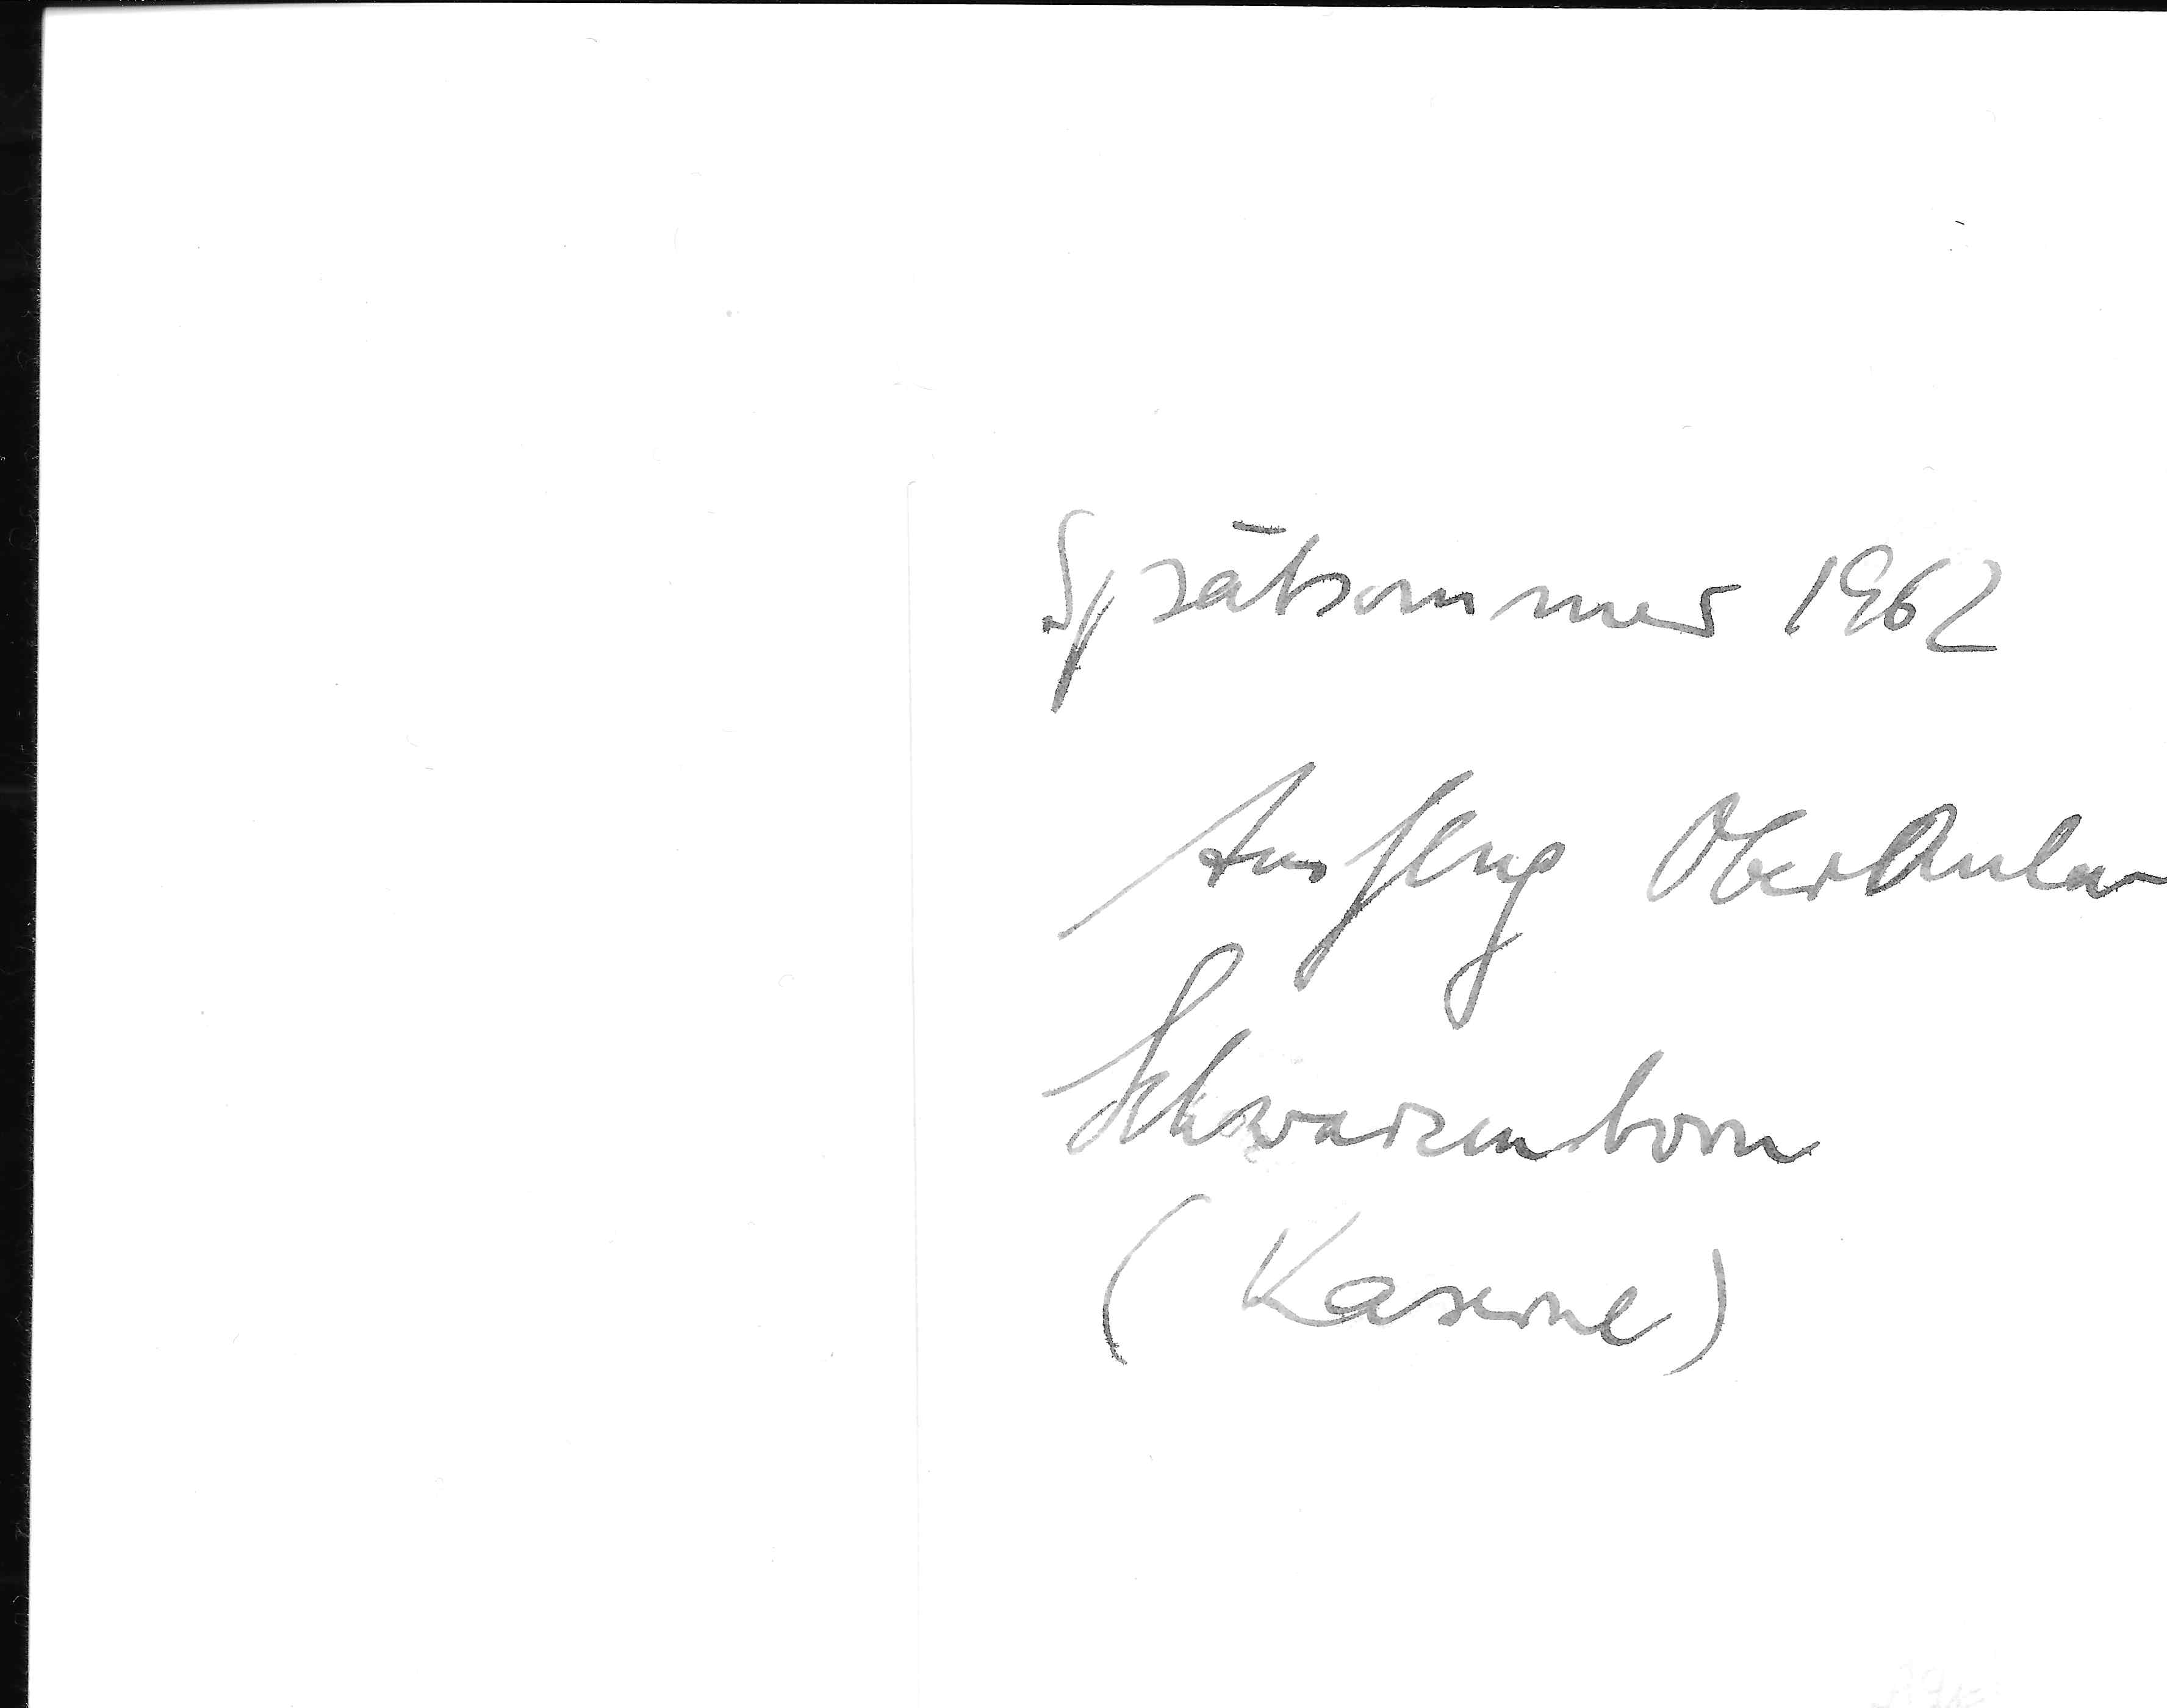 Spätsommer 1962
Ausflug OberAula
Schwarzenborn
(Kaserne)